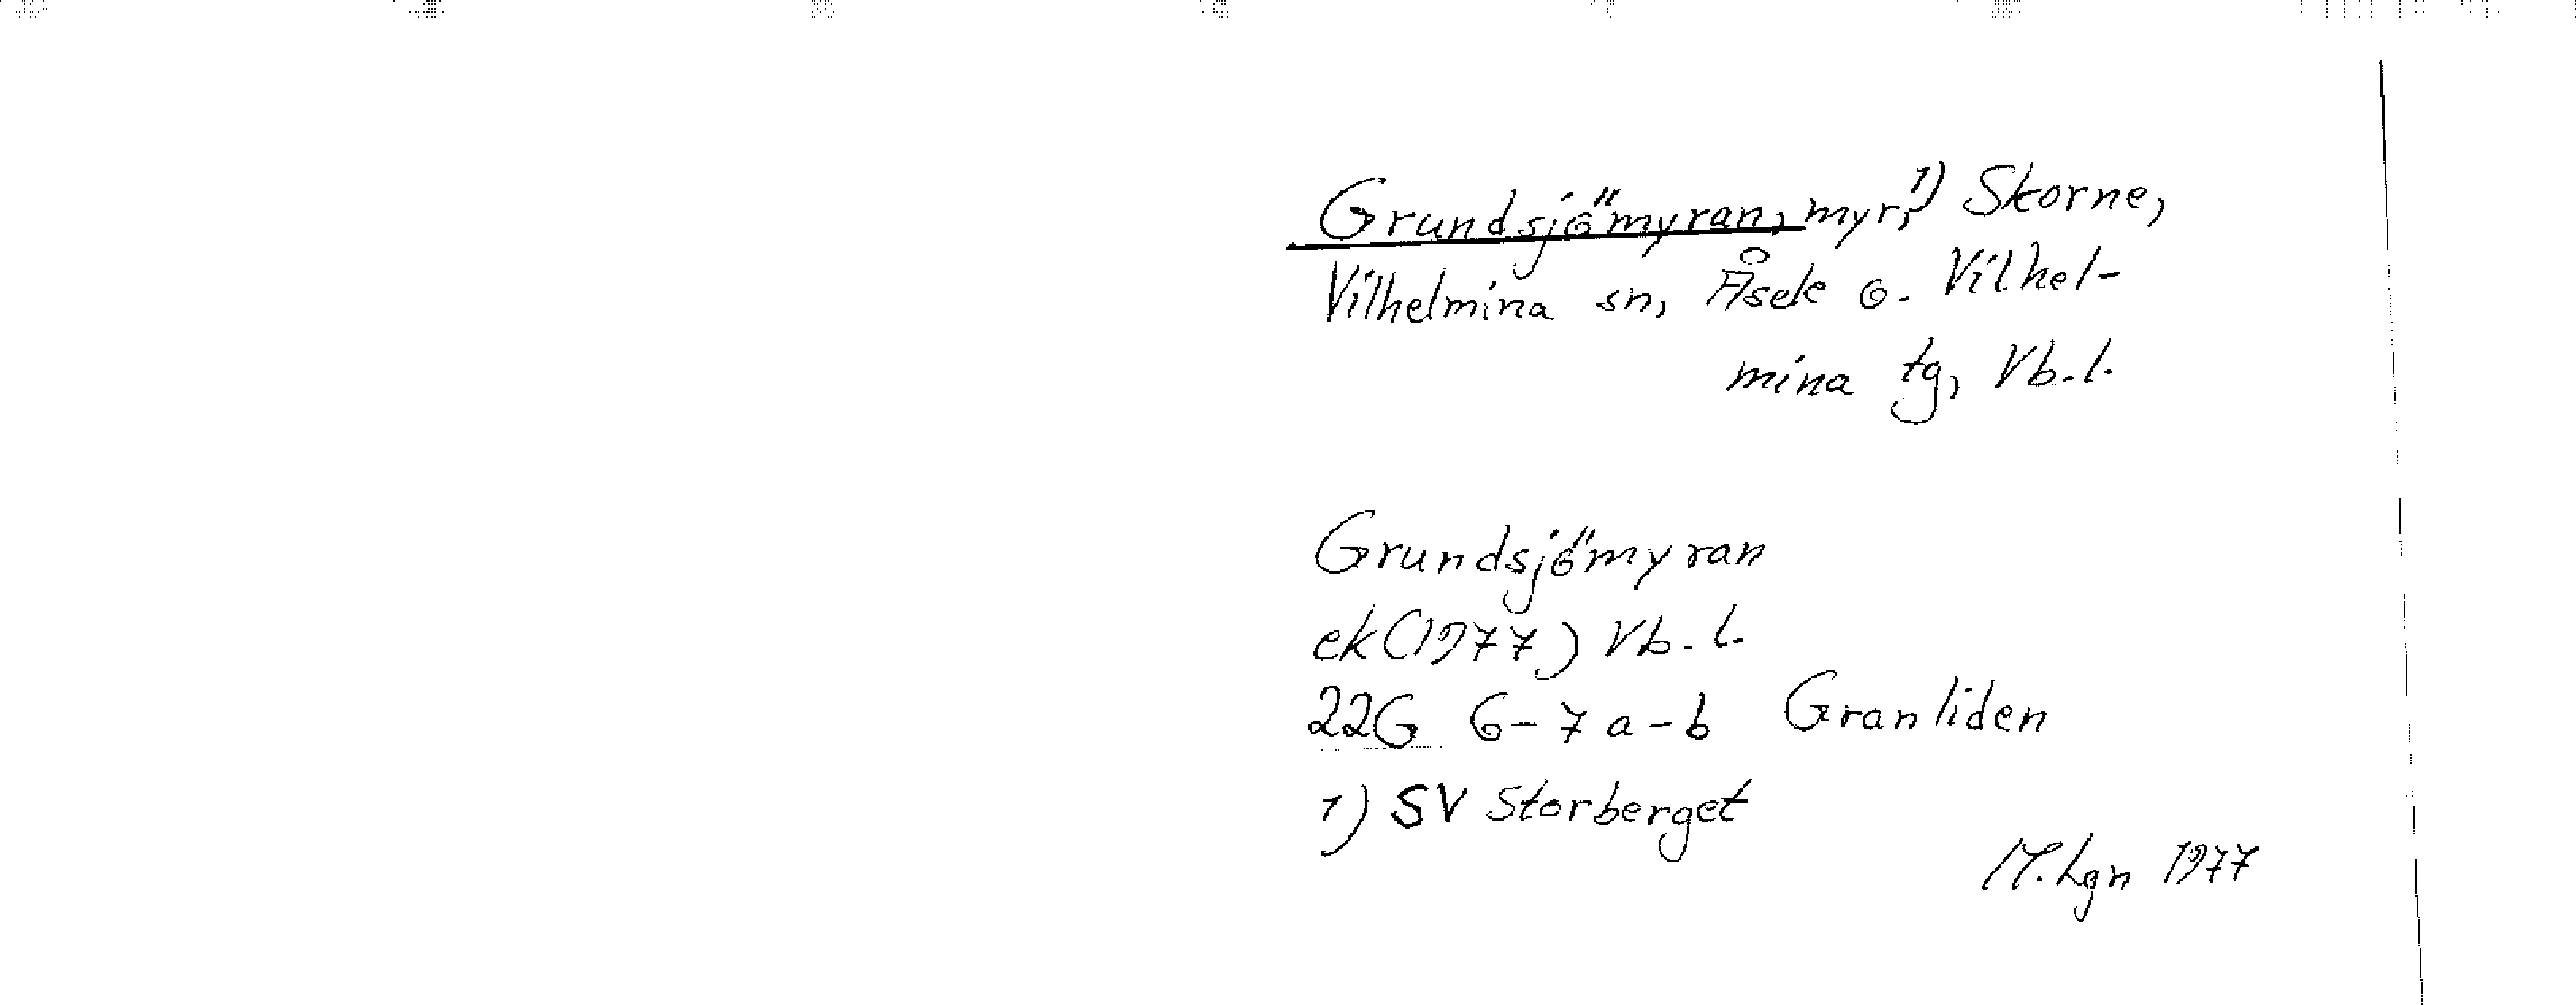 Grundsjömyran, myr,¹⁾ Skorne,
Vilhelmina sn, Åsele o. Vilhel-
mina tg, Vb. l.
Grundsjömyran
ek (1977) Vb. l.
22G 6-7 a-b Granliden
1) SV Storberget
M. Lgn 1977